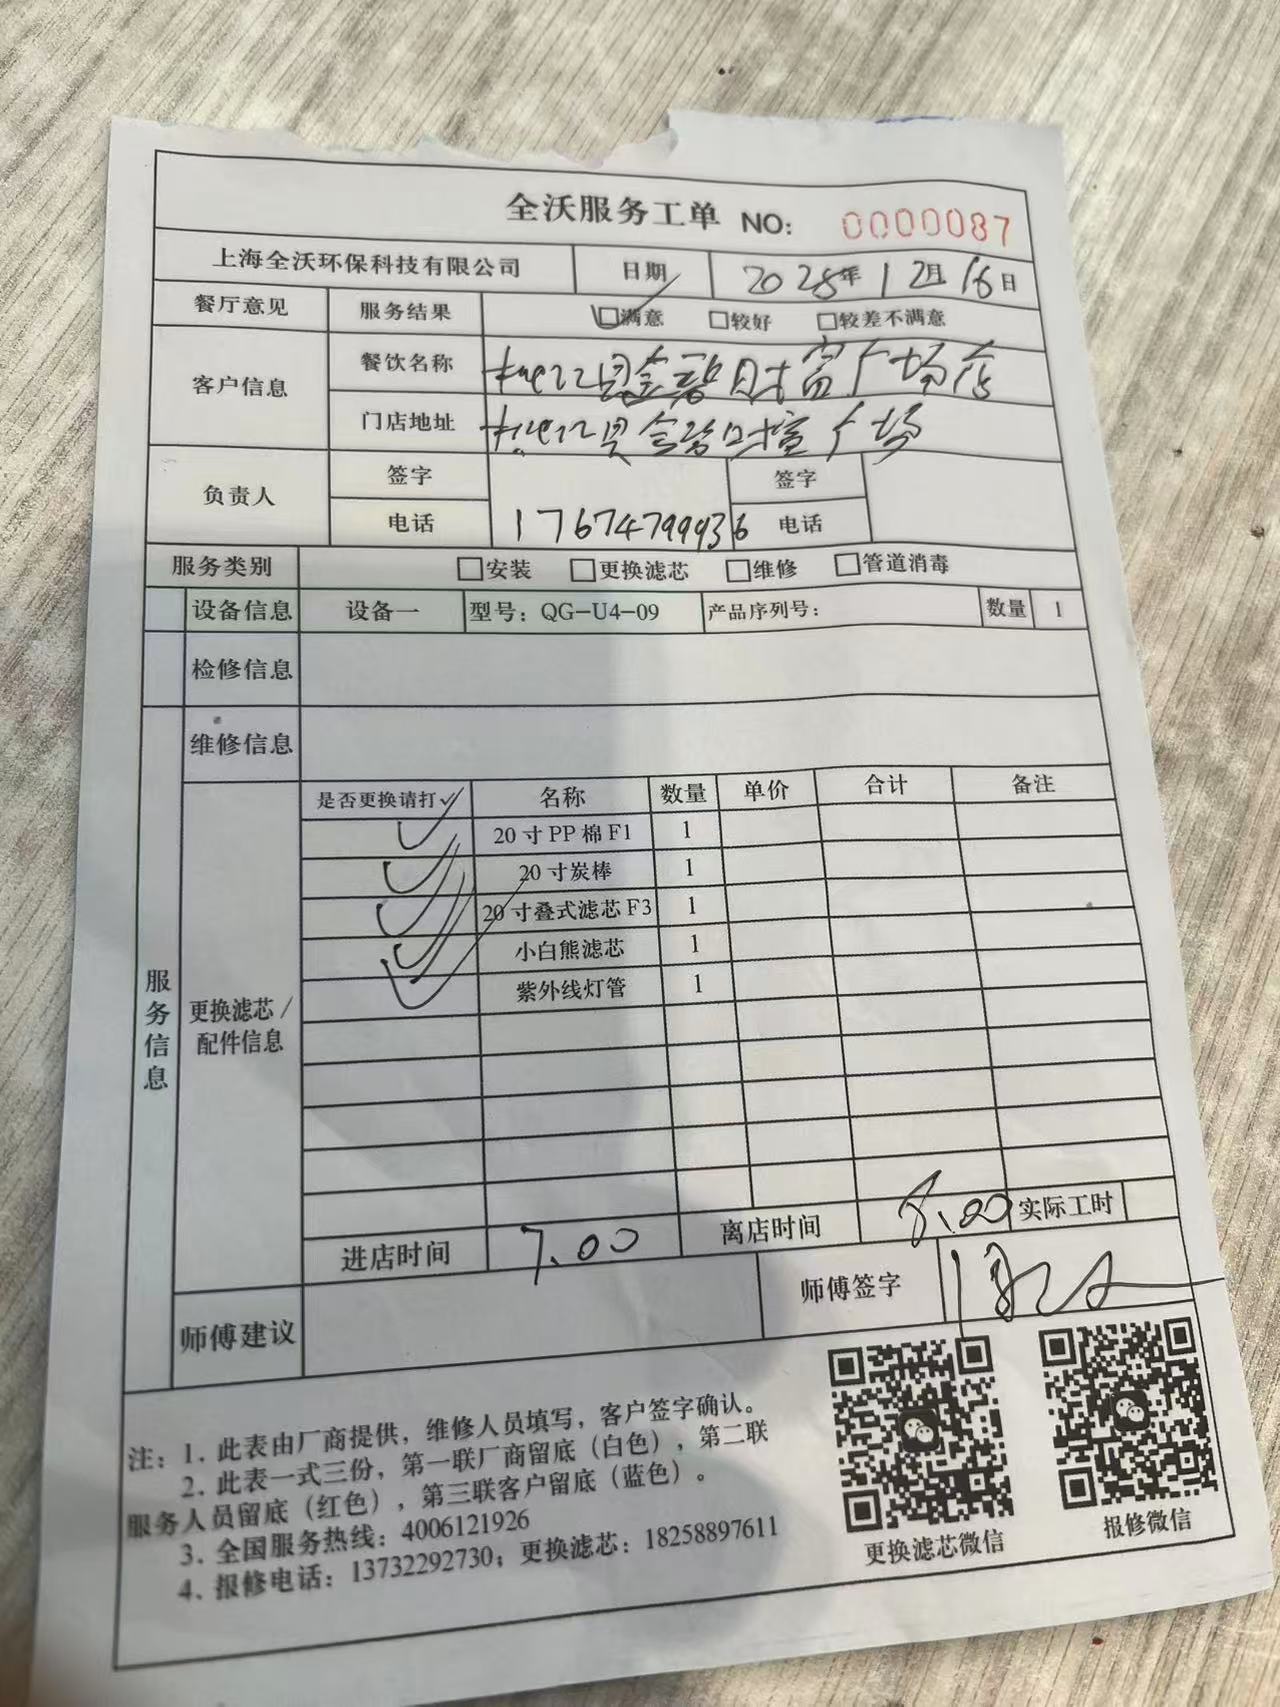 全沃服务工单 NO: 0000087
上海全沃环保科技有限公司 日期 2025年12月16日
餐厅意见 服务结果 ☑满意 □较好 □较差不满意
客户信息 餐饮名称 财富广场店
门店地址 广场
负责人 签字 签字
电话 17674799936 电话
服务类别 □安装 □更换滤芯 □维修 □管道消毒
设备信息 设备一 型号：QG-U4-09 产品序列号： 数量 1
检修信息
维修信息
服务信息
更换滤芯/配件信息
是否更换请打✓ 名称 数量 单价 合计 备注
✓ 20寸PP棉F1 1
✓ 20寸炭棒 1
✓ 20寸叠式滤芯F3 1
✓ 小白熊滤芯 1
✓ 紫外线灯管 1
进店时间 7.00 离店时间 8.00 实际工时
师傅建议 师傅签字
注：1. 此表由厂商提供，维修人员填写，客户签字确认。
2. 此表一式三份，第一联厂商留底（白色），第二联
服务人员留底（红色），第三联客户留底（蓝色）。
3. 全国服务热线：4006121926
4. 报修电话：13732292730；更换滤芯：18258897611
更换滤芯微信 报修微信